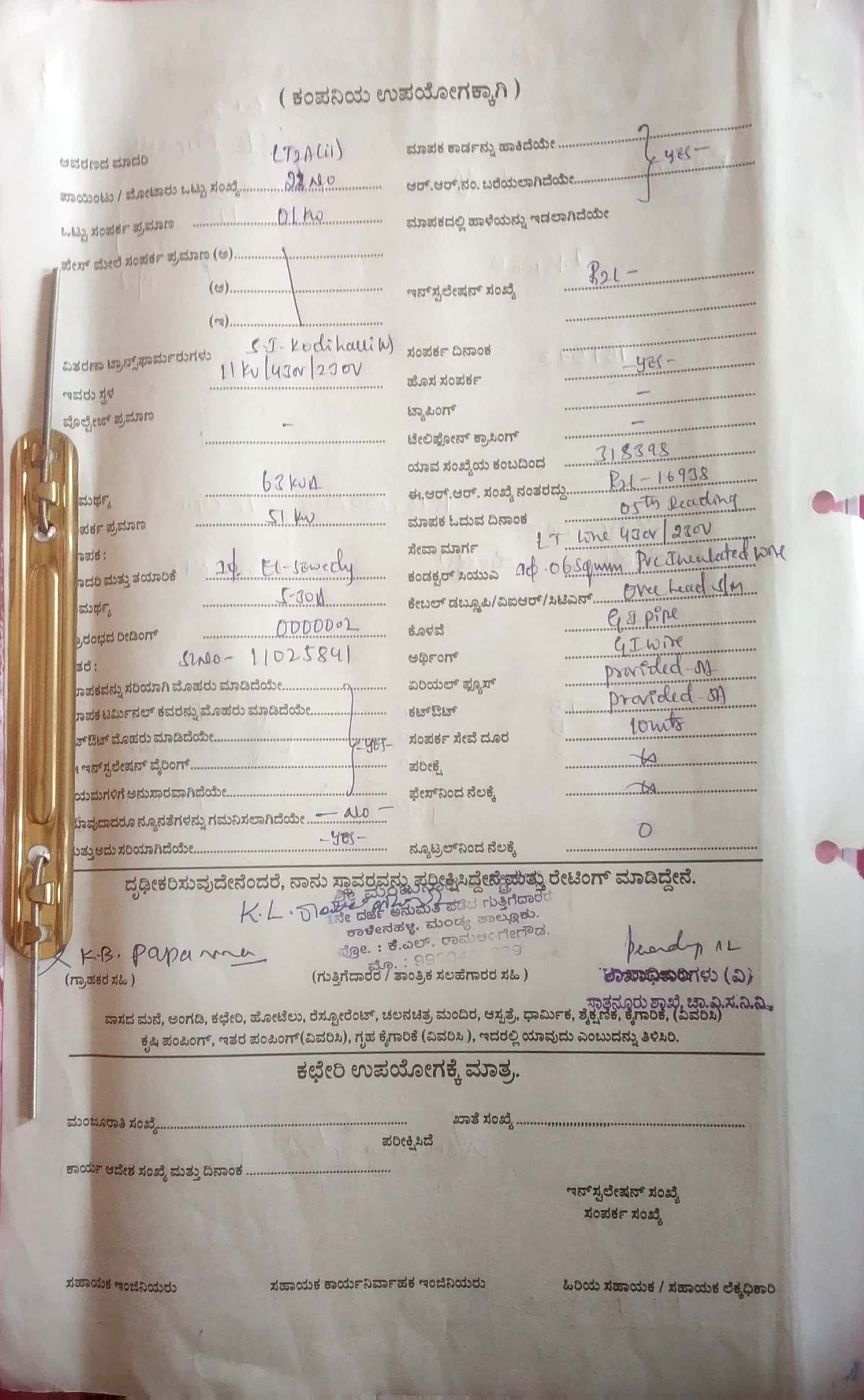 ( ಕಂಪನಿಯ ಉಪಯೋಗಕ್ಕಾಗಿ )
ಆವರಣದ ಮಾದರಿ LT2A(ii)
ಪಾಯಿಂಟು / ಮೋಟಾರು ಒಟ್ಟು ಸಂಖ್ಯೆ No
ಒಟ್ಟು ಸಂಪರ್ಕ ಪ್ರಮಾಣ 01 KW
ಫೇಸ್ ಮೇಲೆ ಸಂಪರ್ಕ ಪ್ರಮಾಣ (ಅ)
(ಆ)
(ಇ)
ವಿತರಣಾ ಟ್ರಾನ್ಸ್‌ಫಾರ್ಮರುಗಳು S.I. Kodihalli(V)
ಇವರು ಸ್ಥಳ 11KV/430V/230V
ವೋಲ್ಟೇಜ್ ಪ್ರಮಾಣ -
ಮರ್ಥ್ಯ 63 KVA
ಪರ್ಕ ಪ್ರಮಾಣ 51 KW
ಾಪಕ :
ಾದರಿ ಮತ್ತು ತಯಾರಿಕೆ 1φ El-Sewedy
ಮರ್ಥ್ಯ 5-30A
್ರಾರಂಭದ ರೀಡಿಂಗ್ 0000002
ತರೆ : SlNo- 11025841
ಾಪಕವನ್ನು ಸರಿಯಾಗಿ ಮೊಹರು ಮಾಡಿದೆಯೇ
ಾಪಕ ಟರ್ಮಿನಲ್ ಕವರನ್ನು ಮೊಹರು ಮಾಡಿದೆಯೇ
ಟ್‌ಔಟ್ ಮೊಹರು ಮಾಡಿದೆಯೇ -YES-
ಇನ್‌ಸ್ಪಲೇಷನ್ ವೈರಿಂಗ್
ಯಮಗಳಿಗೆ ಅನುಸಾರವಾಗಿದೆಯೇ
ಾವುದಾದರೂ ನ್ಯೂನತೆಗಳನ್ನು ಗಮನಿಸಲಾಗಿದೆಯೇ - No -
ುತ್ತು ಅದು ಸರಿಯಾಗಿದೆಯೇ -YES-
ಮಾಪಕ ಕಾರ್ಡನ್ನು ಹಾಕಿದೆಯೇ
ಆರ್.ಆರ್.ನಂ. ಬರೆಯಲಾಗಿದೆಯೇ YES-
ಮಾಪಕದಲ್ಲಿ ಹಾಳೆಯನ್ನು ಇಡಲಾಗಿದೆಯೇ
ಇನ್‌ಸ್ಪಲೇಷನ್ ಸಂಖ್ಯೆ R2L-
ಸಂಪರ್ಕ ದಿನಾಂಕ
ಹೊಸ ಸಂಪರ್ಕ -YES-
ಟ್ಯಾಪಿಂಗ್ -
ಟೇಲಿಫೋನ್ ಕ್ರಾಸಿಂಗ್ -
ಯಾವ ಸಂಖ್ಯೆಯ ಕಂಬದಿಂದ 318398
ಈ.ಆರ್.ಆರ್. ಸಂಖ್ಯೆ ನಂತರದ್ದು R2L-16938
ಮಾಪಕ ಓದುವ ದಿನಾಂಕ 05th Reading
ಸೇವಾ ಮಾರ್ಗ LT Line 430V/230V
ಕಂಡಕ್ಟರ್ ಸಿಯುಎ 1φ 06 Sqmm PVC Insulated Wire
ಕೇಬಲ್ ಡಬ್ಲ್ಯೂಪಿ/ವಿಐಆರ್/ಸಿಟಿಎಸ್ Over Head S/M
ಕೊಳವೆ GI pipe
ಅರ್ಥಿಂಗ್ GI wire
ಏರಿಯಲ್ ಫ್ಯೂಸ್ provided-5A
ಕಟ್‌ಔಟ್ provided-5A
ಸಂಪರ್ಕ ಸೇವೆ ದೂರ 10mts
ಪರೀಕ್ಷೆ
ಫೇಸ್‌ನಿಂದ ನೆಲಕ್ಕೆ
ನ್ಯೂಟ್ರಲ್‌ನಿಂದ ನೆಲಕ್ಕೆ 0
ದೃಢೀಕರಿಸುವುದೇನೆಂದರೆ, ನಾನು ಸ್ಥಾವರವನ್ನು ಪರೀಕ್ಷಿಸಿದ್ದೇನೆ ಮತ್ತು ರೇಟಿಂಗ್ ಮಾಡಿದ್ದೇನೆ.
K.L.
ನೇ ದರ್ಜೆ ಅನುಮತಿ ಪಡೆದ ಗುತ್ತಿಗೆದಾರರ
ಕಾಳೇನಹಳ್ಳಿ, ಮಂಡ್ಯ ತಾಲ್ಲೂಕು.
ಪ್ರೋ. : ಕೆ.ಎಲ್. ರಾಮಲಿಂಗೇಗೌಡ.
ಮೊ. :
K.B. Papanna
(ಗ್ರಾಹಕರ ಸಹಿ )
(ಗುತ್ತಿಗೆದಾರರ / ತಾಂತ್ರಿಕ ಸಲಹೆಗಾರರ ಸಹಿ )
ಶಾಖಾಧಿಕಾರಿಗಳು (ವಿ)
ಸಾತನೂರು ಶಾಖೆ, ಚಾ.ವಿ.ಸ.ನಿ.ನಿ.
ವಾಸದ ಮನೆ, ಅಂಗಡಿ, ಕಛೇರಿ, ಹೋಟೆಲು, ರೆಸ್ಟೋರೆಂಟ್, ಚಲನಚಿತ್ರ ಮಂದಿರ, ಆಸ್ಪತ್ರೆ, ಧಾರ್ಮಿಕ, ಶೈಕ್ಷಣಿಕ, ಕೈಗಾರಿಕೆ, (ವಿವರಿಸಿ)
ಕೃಷಿ ಪಂಪಿಂಗ್, ಇತರ ಪಂಪಿಂಗ್(ವಿವರಿಸಿ), ಗೃಹ ಕೈಗಾರಿಕೆ (ವಿವರಿಸಿ ), ಇದರಲ್ಲಿ ಯಾವುದು ಎಂಬುದನ್ನು ತಿಳಿಸಿರಿ.
ಕಛೇರಿ ಉಪಯೋಗಕ್ಕೆ ಮಾತ್ರ.
ಮಂಜೂರಾತಿ ಸಂಖ್ಯೆ ಖಾತೆ ಸಂಖ್ಯೆ
ಪರೀಕ್ಷಿಸಿದೆ
ಕಾರ್ಯ ಆದೇಶ ಸಂಖ್ಯೆ ಮತ್ತು ದಿನಾಂಕ
ಇನ್‌ಸ್ಪಲೇಷನ್ ಸಂಖ್ಯೆ
ಸಂಪರ್ಕ ಸಂಖ್ಯೆ
ಸಹಾಯಕ ಇಂಜಿನಿಯರು ಸಹಾಯಕ ಕಾರ್ಯನಿರ್ವಾಹಕ ಇಂಜಿನಿಯರು ಹಿರಿಯ ಸಹಾಯಕ / ಸಹಾಯಕ ಲೆಕ್ಕಧಿಕಾರಿ